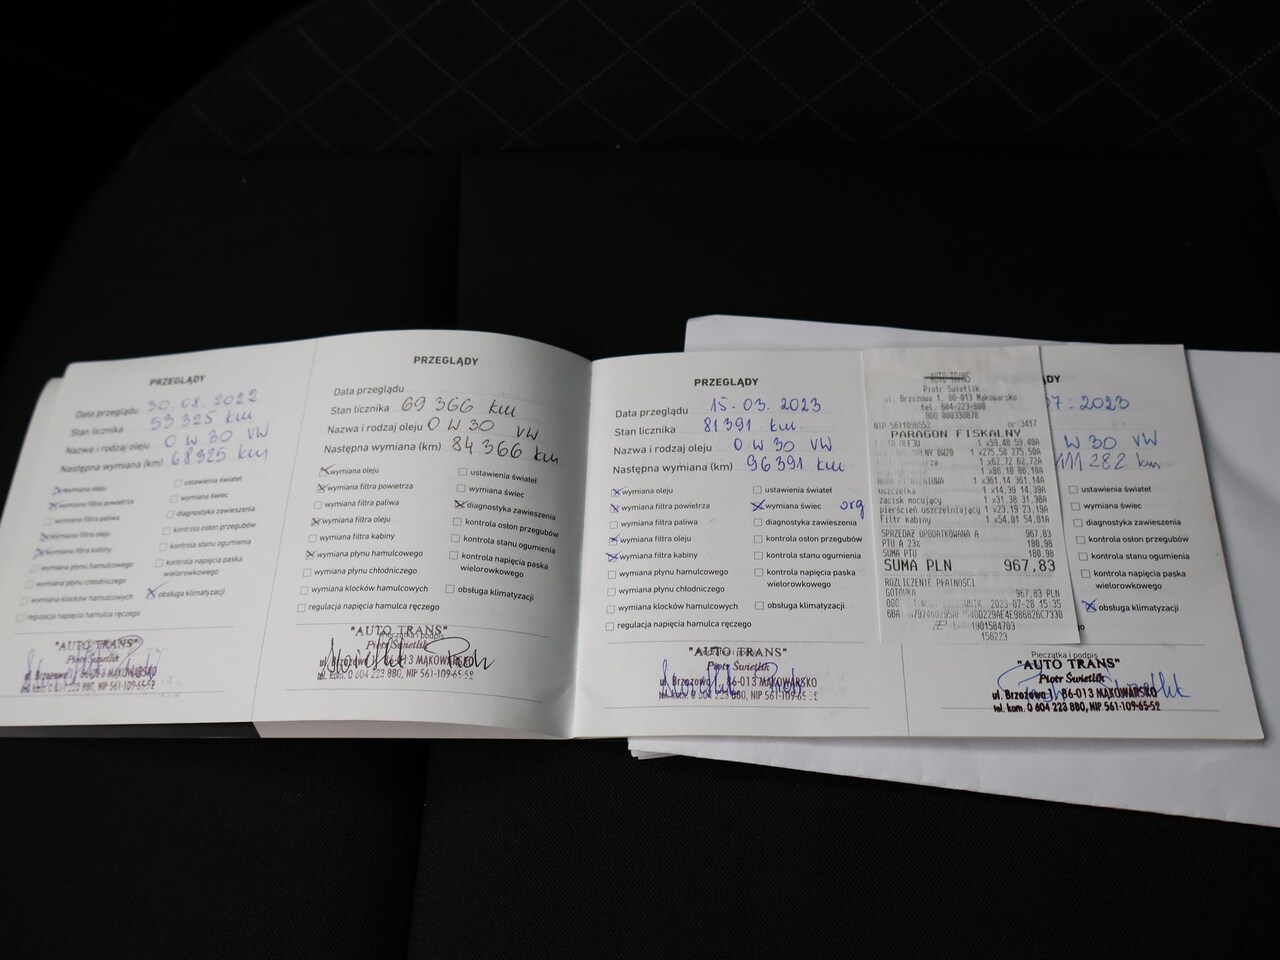 PRZEGLĄDY
Data przeglądu 30.08.2022
Stan licznika 59 325 km
Nazwa i rodzaj oleju 0 W 30 VW
Następna wymiana (km) 68325 km
wymiana oleju
wymiana filtra powietrza
wymiana filtra paliwa
wymiana filtra oleju
wymiana filtra kabiny
wymiana płynu hamulcowego
wymiana płynu chłodniczego
wymiana klocków hamulcowych
regulacja napięcia hamulca ręcznego
ustawienia świateł
wymiana świec
diagnostyka zawieszenia
kontrola osłon przegubów
kontrola stanu ogumienia
kontrola napięcia paska
wielorowkowego
obsługa klimatyzacji
"AUTO TRANS"
Piotr Świetlik
ul. Brzozowa 1, 86-013 MĄKOWARSKO
tel. kom. 0 604 223 880, NIP 561-109-65-52
PRZEGLĄDY
Data przeglądu
Stan licznika 69 366 km
Nazwa i rodzaj oleju 0 W 30 VW
Następna wymiana (km) 84 366 km
wymiana oleju
wymiana filtra powietrza
wymiana filtra paliwa
wymiana filtra oleju
wymiana filtra kabiny
wymiana płynu hamulcowego
wymiana płynu chłodniczego
wymiana klocków hamulcowych
regulacja napięcia hamulca ręcznego
ustawienia świateł
wymiana świec
diagnostyka zawieszenia
kontrola osłon przegubów
kontrola stanu ogumienia
kontrola napięcia paska
wielorowkowego
obsługa klimatyzacji
"AUTO TRANS"
Pieczątka i podpis
Piotr Świetlik
ul. Brzozowa 1, 86-013 MĄKOWARSKO
tel. kom. 0 604 223 880, NIP 561-109-65-52
PRZEGLĄDY
Data przeglądu 15.03.2023
Stan licznika 81 391 km
Nazwa i rodzaj oleju 0 W 30 VW
Następna wymiana (km) 96391 km
wymiana oleju
wymiana filtra powietrza
wymiana filtra paliwa
wymiana filtra oleju
wymiana filtra kabiny
wymiana płynu hamulcowego
wymiana płynu chłodniczego
wymiana klocków hamulcowych
regulacja napięcia hamulca ręcznego
ustawienia świateł
wymiana świec org
diagnostyka zawieszenia
kontrola osłon przegubów
kontrola stanu ogumienia
kontrola napięcia paska
wielorowkowego
obsługa klimatyzacji
"AUTO TRANS"
Piotr Świetlik
ul. Brzozowa 1, 86-013 MĄKOWARSKO
tel. kom. 0 604 223 880, NIP 561-109-65-52
AUTO TRANS
Piotr Świetlik
ul. Brzozowa 1, 86-013 Mąkowarsko
tel. 604-223-880
BDO 000330878
NIP 5611096552 nr 3417
PARAGON FISKALNY
1 x59,40 59,40A
0W20 1 x275,50 275,50A
1 x62,72 62,72A
1 x86,10 86,10A
1 x361,14 361,14A
uszczelka 1 x14,39 14,39A
zacisk mocujący 1 x31,38 31,38A
pierścień uszczelniający 1 x23,19 23,19A
Filtr kabiny 1 x54,01 54,01A
SPRZEDAŻ OPODATKOWANA A 967,83
PTU A 23% 180,98
SUMA PTU 180,98
SUMA PLN 967,83
ROZLICZENIE PŁATNOŚCI
GOTÓWKA 967,83 PLN
2023-07-28 15:35
1901584703
156223
DY
07.2023
W 30 VW
111 282 km
ustawienia świateł
wymiana świec
diagnostyka zawieszenia
kontrola osłon przegubów
kontrola stanu ogumienia
kontrola napięcia paska
wielorowkowego
obsługa klimatyzacji
Pieczątka i podpis
"AUTO TRANS"
Piotr Świetlik
ul. Brzozowa 1, 86-013 MĄKOWARSKO
tel. kom. 0 604 223 880, NIP 561-109-65-52